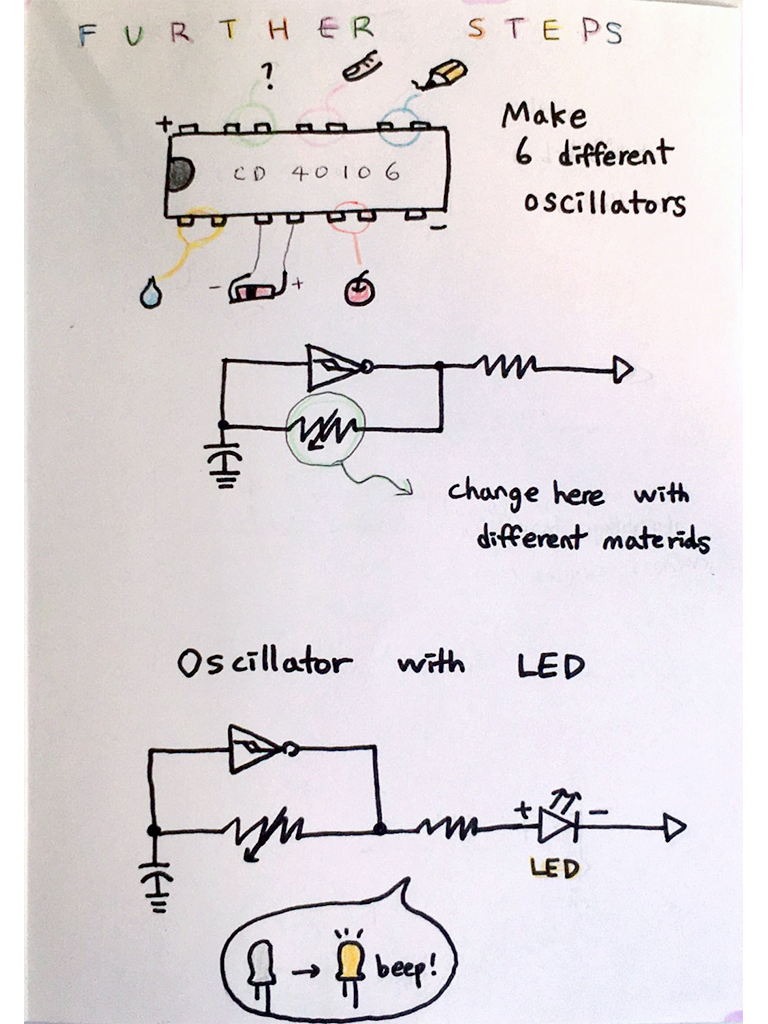 FURTHER STEPS
?
+
CD 40106
Make
6 different
oscillators
-
- +
change here with
different materids
Oscillator with LED
+ -
LED
→ beep!